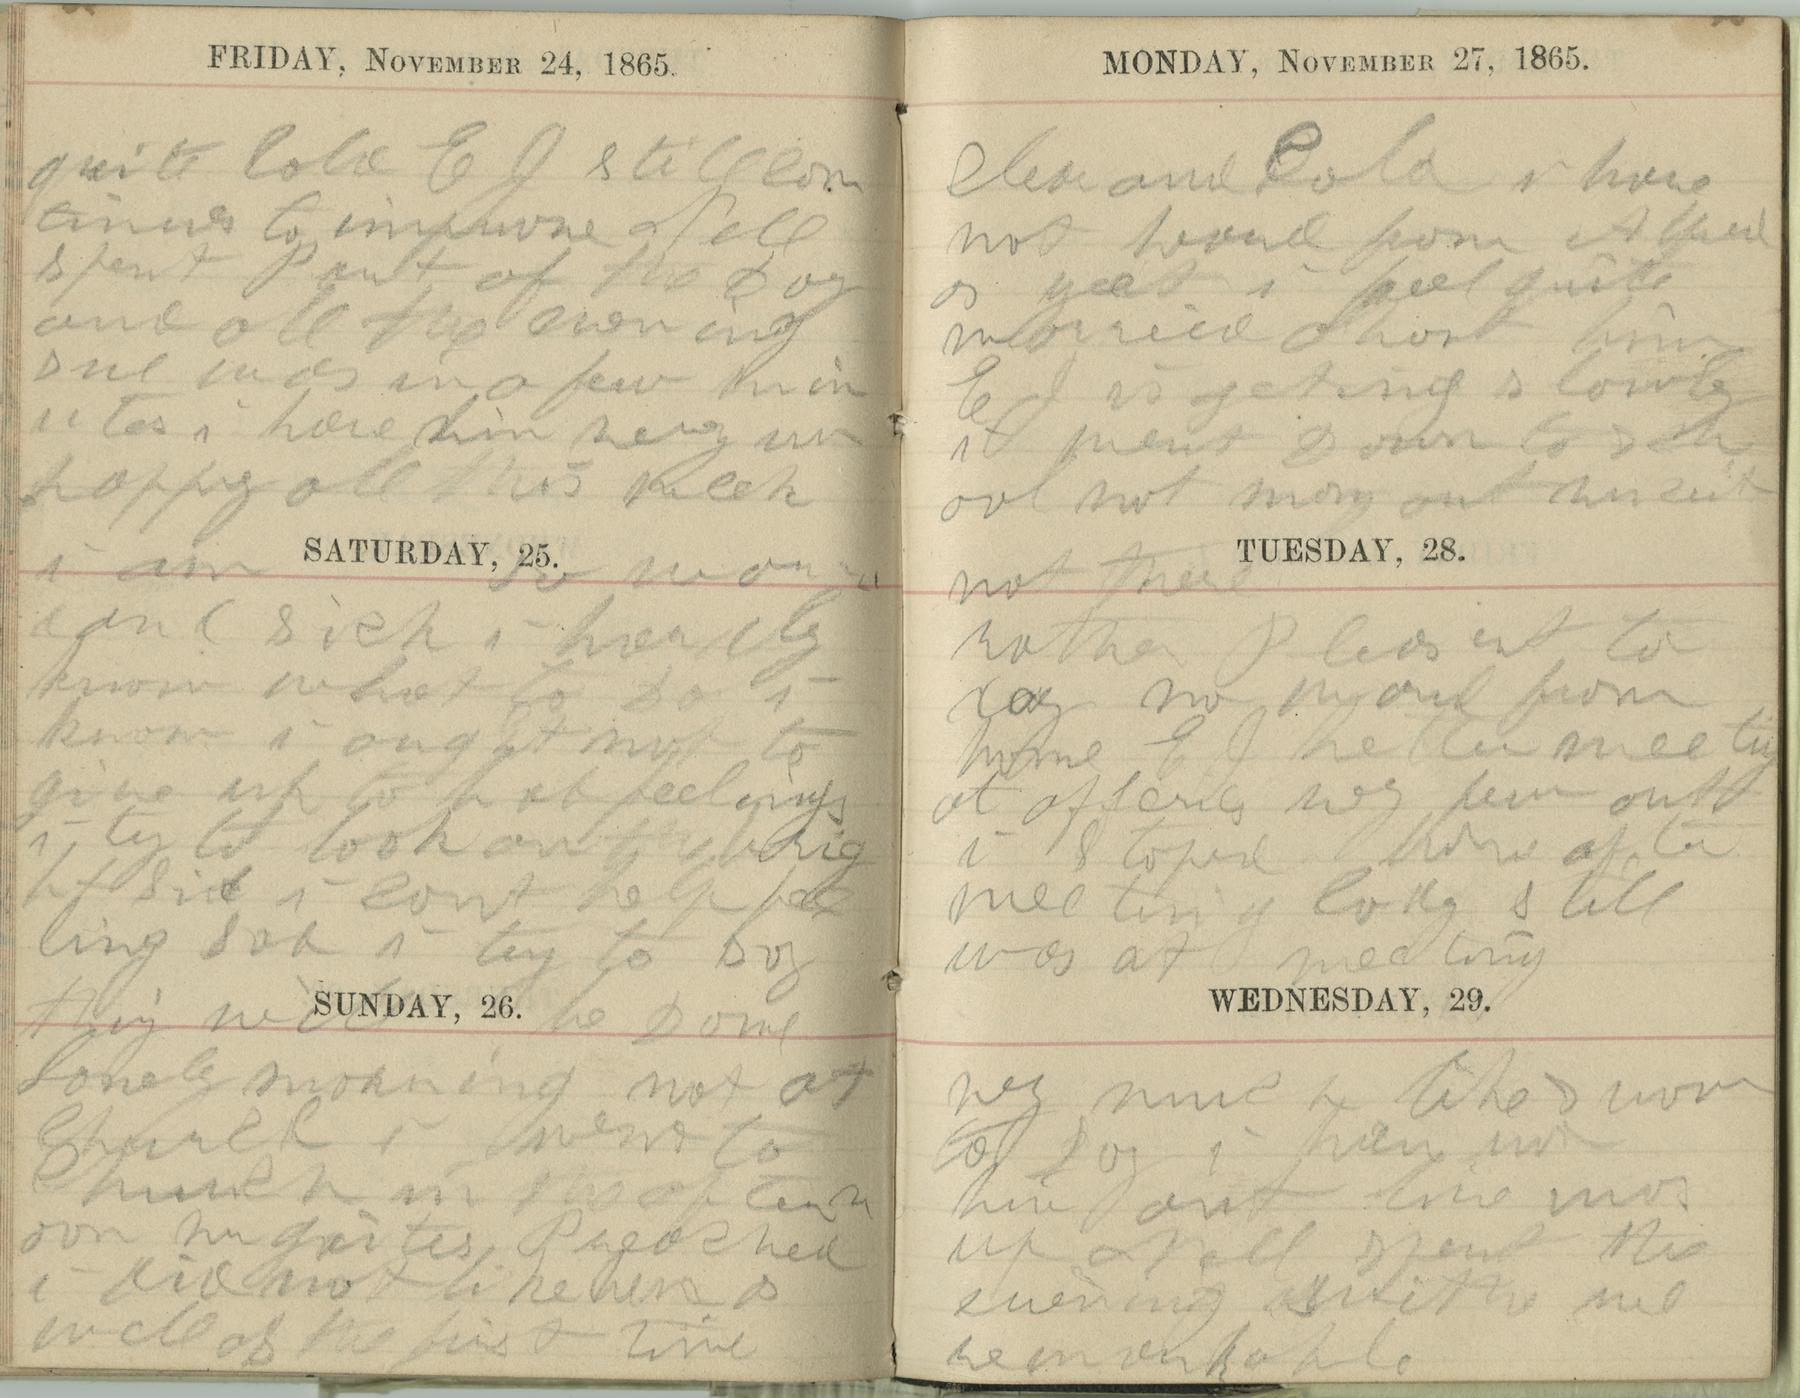 FRIDAY, NOVEMBER 24, 1865.
quite Cold E J still con
tinues to improve Nell
spent Part of the Day
and all the evening
she was in a few min
utes i have bin very un
happy all this week
SATURDAY, 25.
i am so
and sick i hardly
know what to Do i
know i ought not to
give up to bad feelings
i try to look on the brig
ht Side i cont help fee
ling Sad i try to Say
thiy will be Done
SUNDAY, 26.
Lonely morning not at
Church i went to
Church in the aftern
oon Preached
i did not like him as
well as the first time
MONDAY, NOVEMBER 27, 1865.
Clear and Cold i have
not heard from Alfred
as yeat i feel quite
worried about him
E J is geting slowly
i went Down to Sch
ool not many out
TUESDAY, 28.
not there
rather Pleasent to
Day no word from
home E J better meeting
at very few out
i stoped here after
meeting still
was at meeting
WEDNESDAY, 29.
very much like snow
to Day i have
bin out
up Nell spent the
evening withe me
remarkable